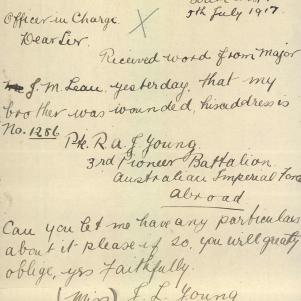 5th July 1917.
Officer in Charge
Dear Sir
Received word from Major
J. M. Lean, yesterday, that my
brother was wounded, his address is
No. 1286
Pte R. A. J Young
3rd Pioneer Battalion
Australian Imperial Force
abroad
Can you let me have any particulars
about it please if so, you will greatly
oblige, yrs Faithfully.
(Miss) J. L. Young